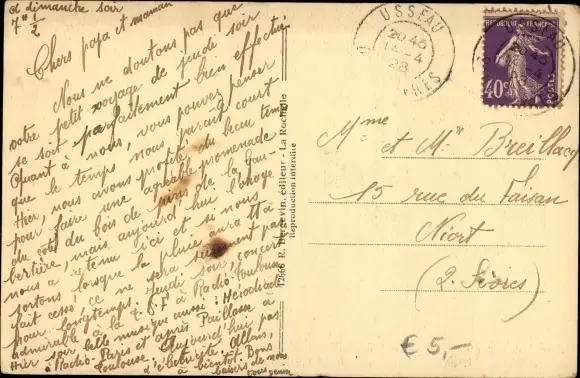 dimanche soir
7h 1/2
Chers papa et maman
Nous ne doutons pas que
votre petit voyage de jeudi soir
se soit parfaitement bien effectué.
Quant à nous, vous pouvez penser
que le temps nous paraît court
Hier, nous avons profité du beau temps
pour faire une agréable promenade
du côté du bois de pins de la Gau-
bertière, mais aujourd'hui l'orage
nous a retenu ici et si nous
sortons, lorsque la pluie aura tout à
fait cessé, ce ne sera sûrement pas
pour longtemps. Jeudi soir, concert
admirable à la T.S.F à Radio-Toulouse
Hier soir belle musique aussi:
à Radio-Paris et après Paillasse à
Toulouse. Aujourd'hui pas
d'électricité. Allons,
à bientôt. Bons
baisers de nous
12666 R. Bergevin, éditeur - La Rochelle
Reproduction interdite
USSEAU
20 45
14-4
28
REPUBLIQUE FRANCAISE
40c
POSTES
Mme et Mr Breillacq
15 rue du Faisan
Niort
(2. Sèvres)
€ 5,-